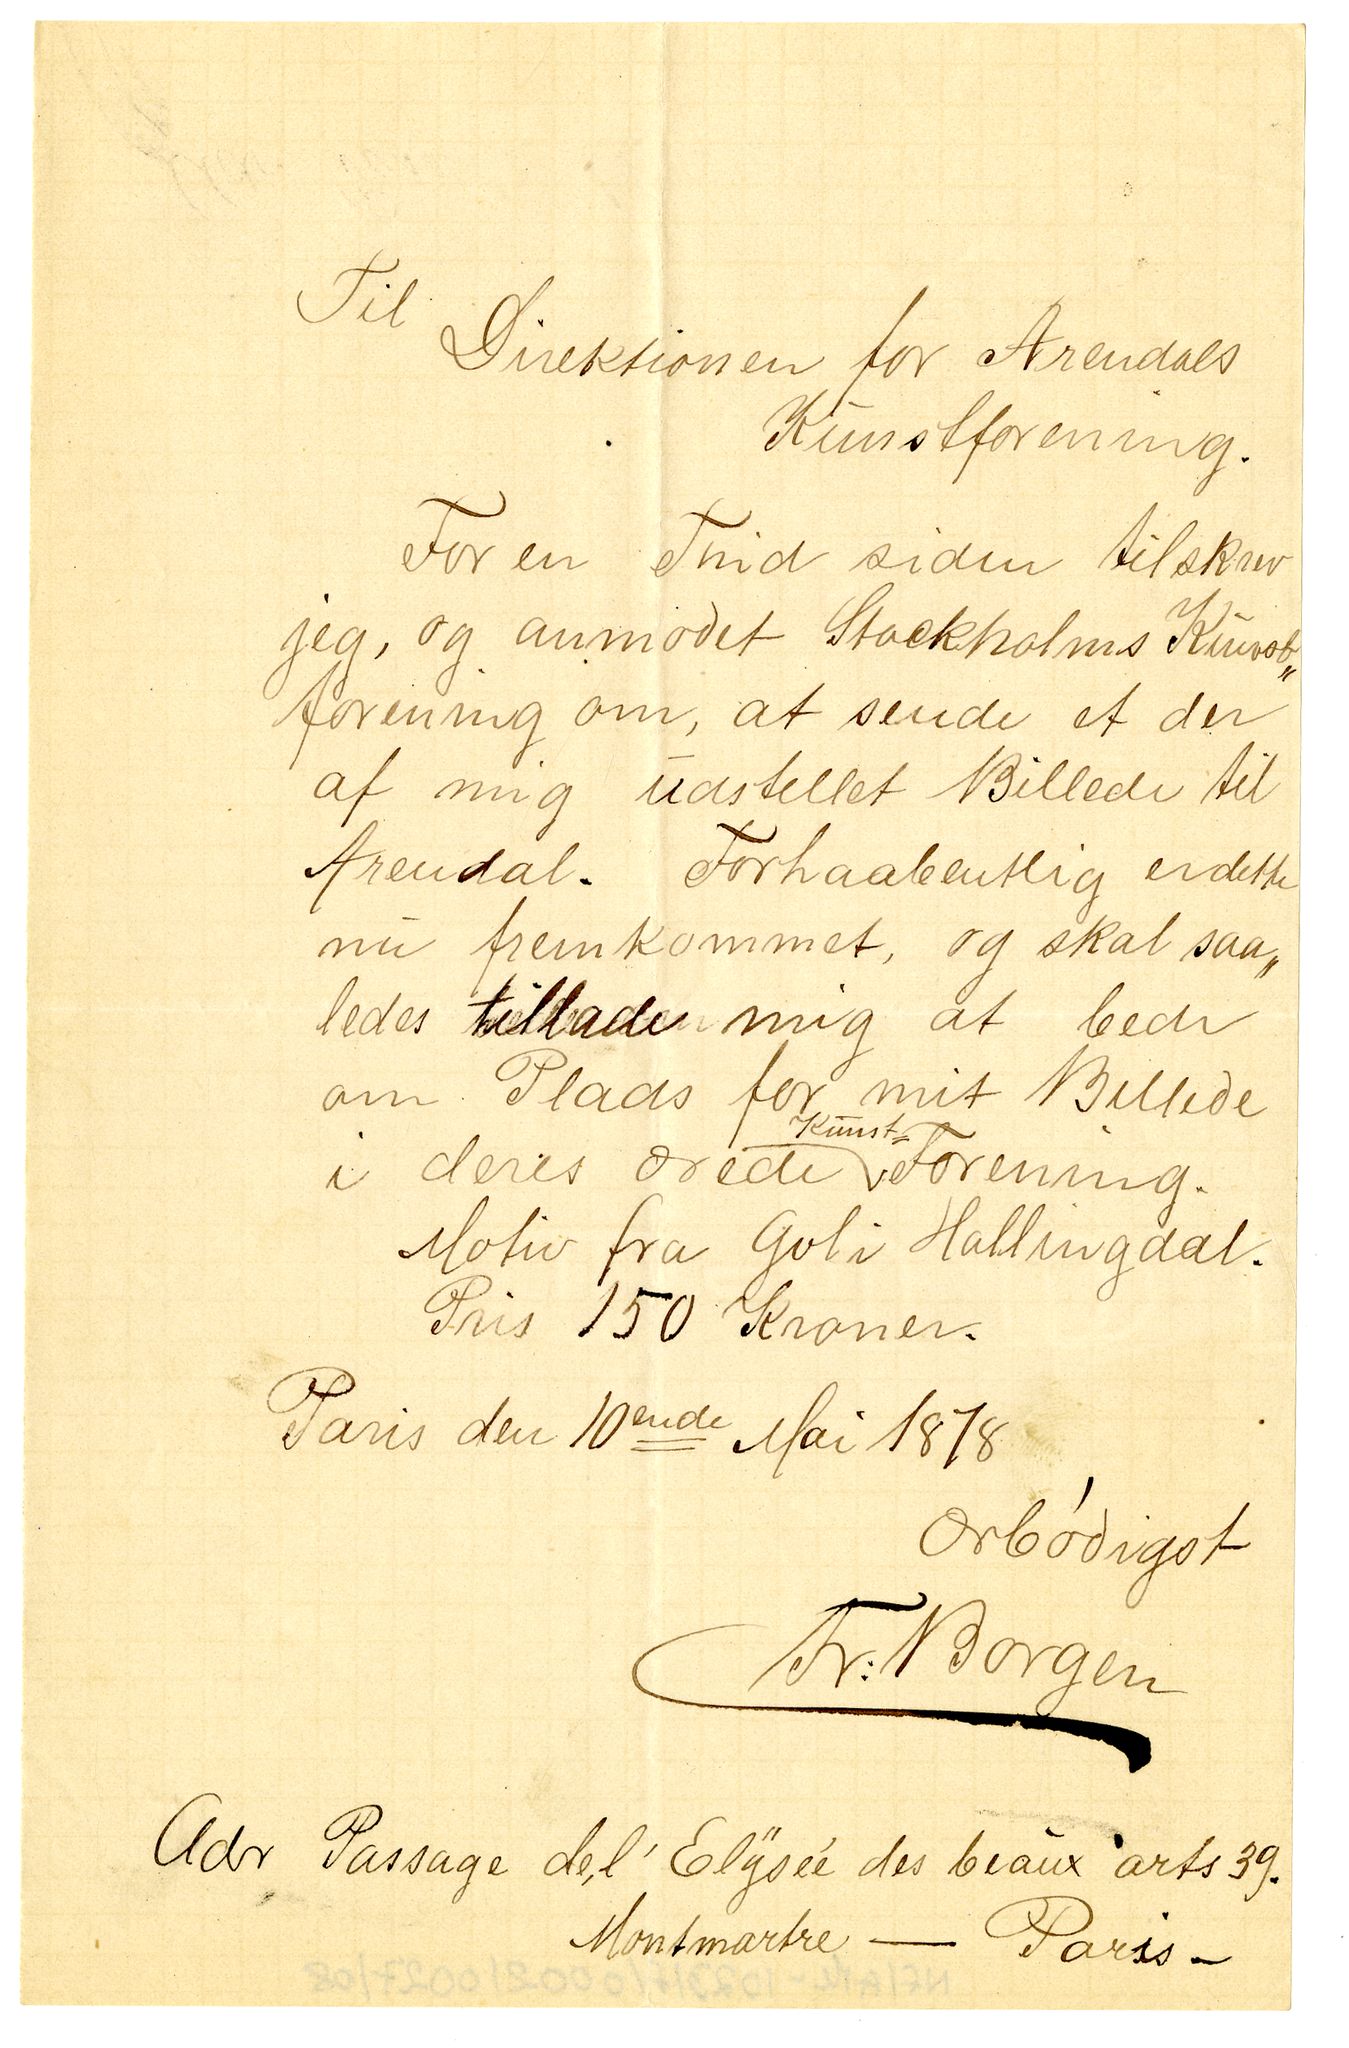 Til
Direktionen for Arendals
Kunstforening.
For en Tiid siden tilskrev
jeg, og anmodet Stockholms Kunst„
forening om, at sende et der
af mig udstellet Billede til
Arendal. Forhaabentlig er dette
nu fremkommet, og skal saa„
ledes tillade mig at bede
om Plads for mit Billede
i deres ærede Kunst= Forening.
Motiv fra Gol i Hallingdal.
Pris 150 Kroner.
Paris den 10ende Mai 1878
Ærbódigst
Fr: Borgen
Adr Passage de,l' Elÿseé des beaux arts 39.
Montmartre — Paris –